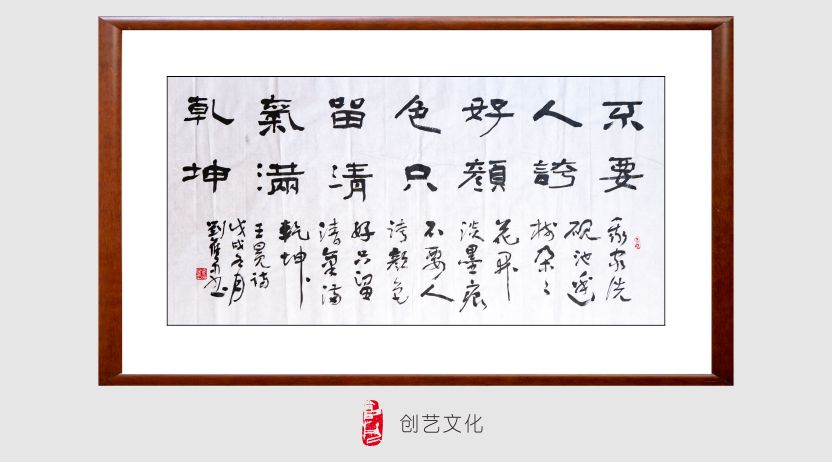 不要
人誇
好顏
色只
留清
氣滿
乾坤
我家洗
砚池边
树朵々
花开
淡墨痕
不要人
誇颜色
好只留
清氣满
乾坤
王冕诗
戊戌冬月
劉
创艺文化